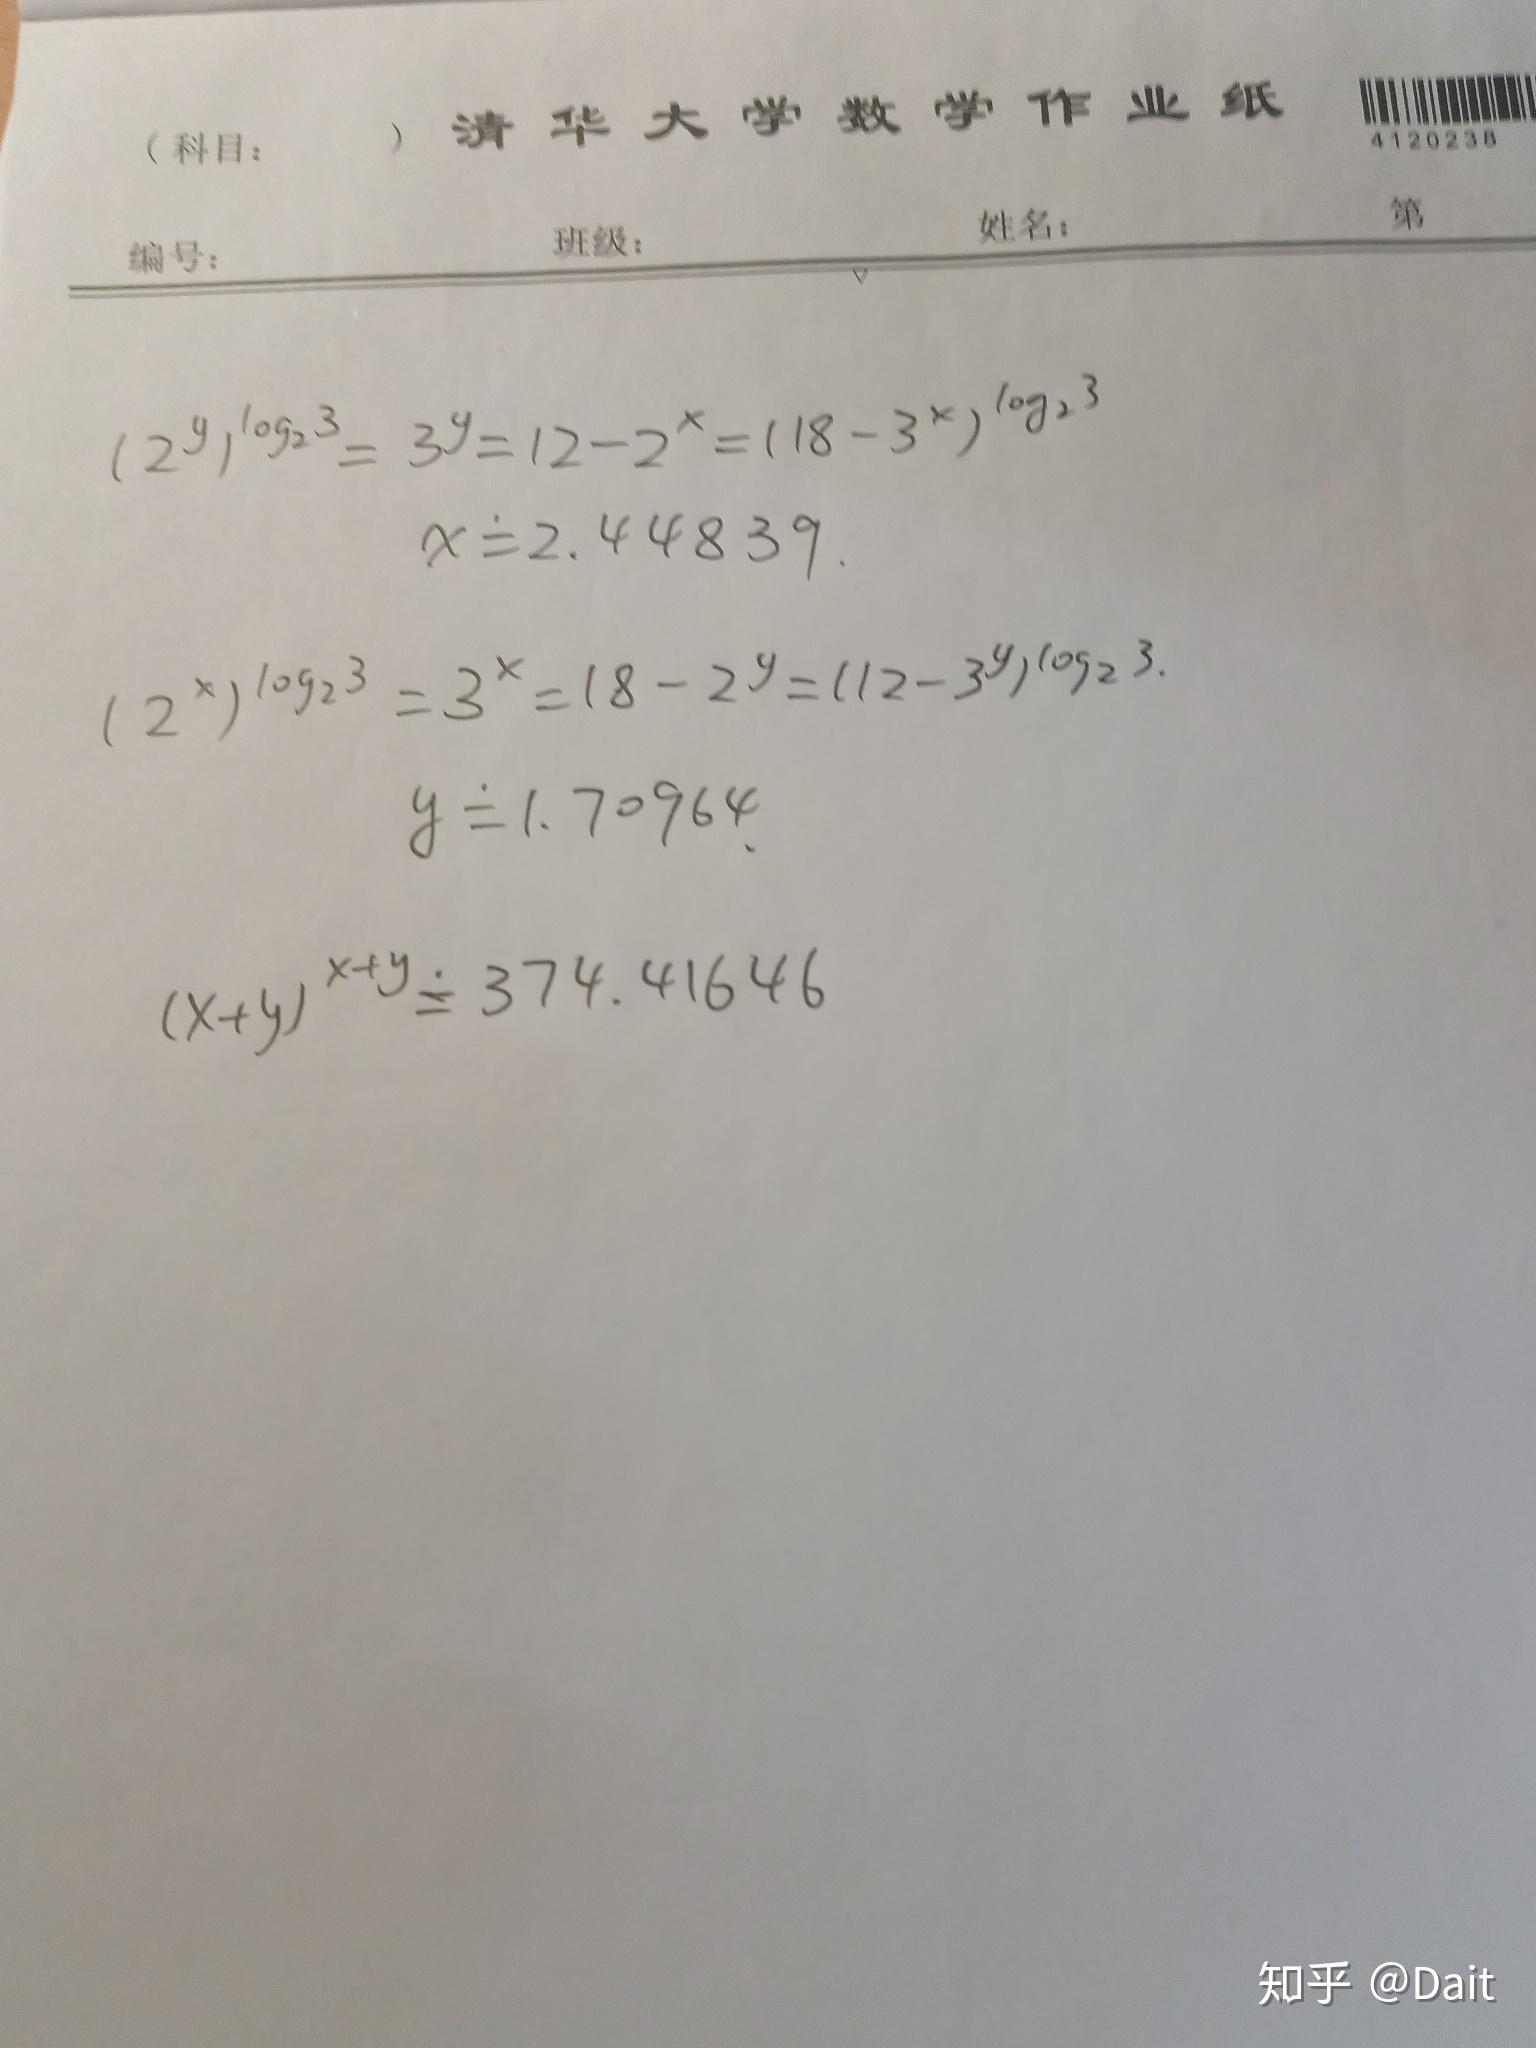 (科目: ) 清华大学数学作业纸
4120238
编号: 班级: 姓名: 第
(2^y)^{log₂3} = 3^y = 12 - 2^x = (18 - 3^x)^{log₂3}
x ≐ 2.44839.
(2^x)^{log₂3} = 3^x = 18 - 2^y = (12 - 3^y)^{log₂3}.
y ≐ 1.70964.
(x+y)^{x+y} ≐ 374.41646
知乎 @Dait